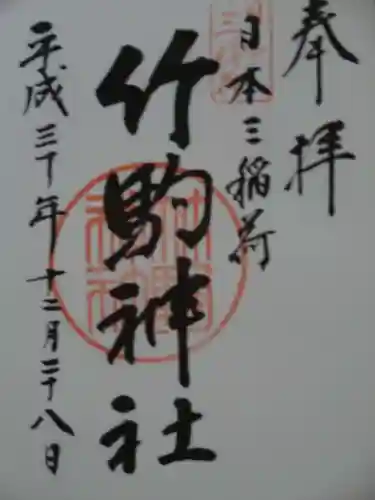 奉拝
日本三稲荷
竹駒神社
平成三十年十二月二十八日